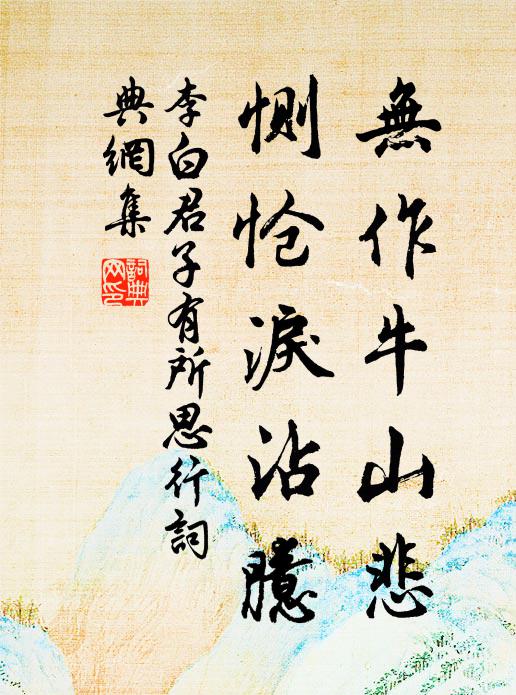 無作牛山悲
惻愴淚沾臆
李白君子有所思行詞
典網集
詞典
网印